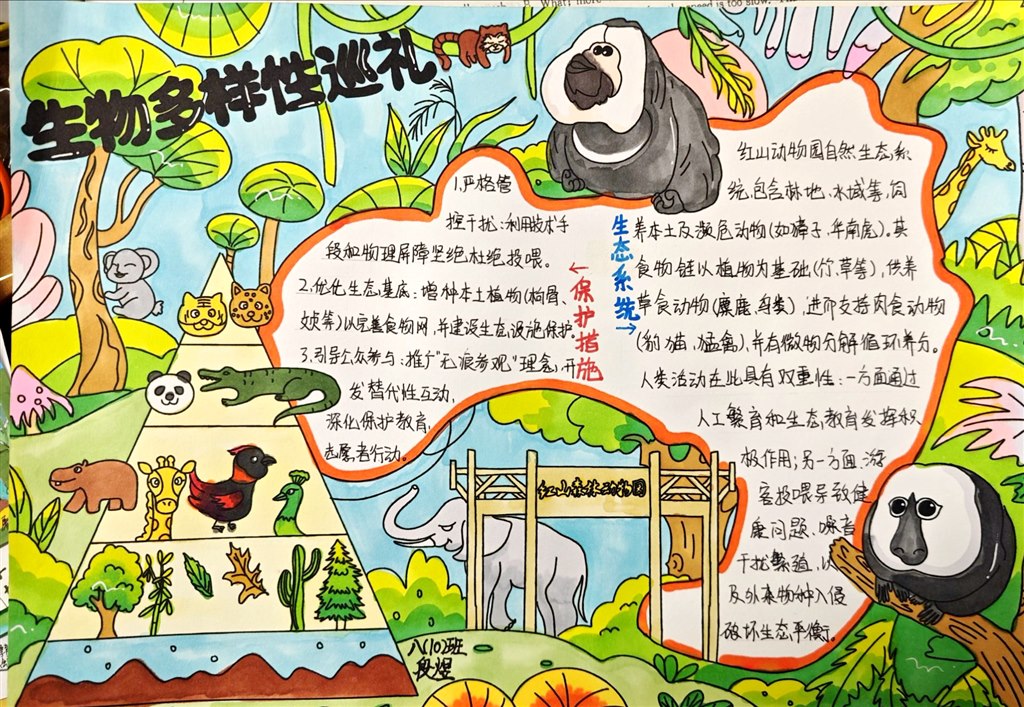 生物多样性巡礼
1.严格管
控干扰：利用技术手
段和物理屏障坚绝杜绝投喂。
2.优化生态基底：增种本土植物(枸骨、
女贞等)以完善食物网，并建设生态设施保护。
3.引导公众参与：推广"无痕参观"理念，开
发替代性互动，
深化保护教育，
志愿者行动。
←保护措施
生态系统→
红山动物园自然生态系
统，包含林地、水域等，饲
养本土及濒危动物(如獐子、华南虎)。其
食物链以植物为基础(竹、草等)，供养
草食动物(麋鹿、鸟类)，进而支持肉食动物
(豹猫、猛禽)，并有微物分解循环养分。
人类活动在此具有双重性：一方面通过
人工繁育和生态教育发挥积
极作用；另一方面，游
客投喂导致健
康问题、噪音
干扰繁殖，以
及外来物种入侵
破坏生态平衡。
红山森林动物园
八(10)班
段煜